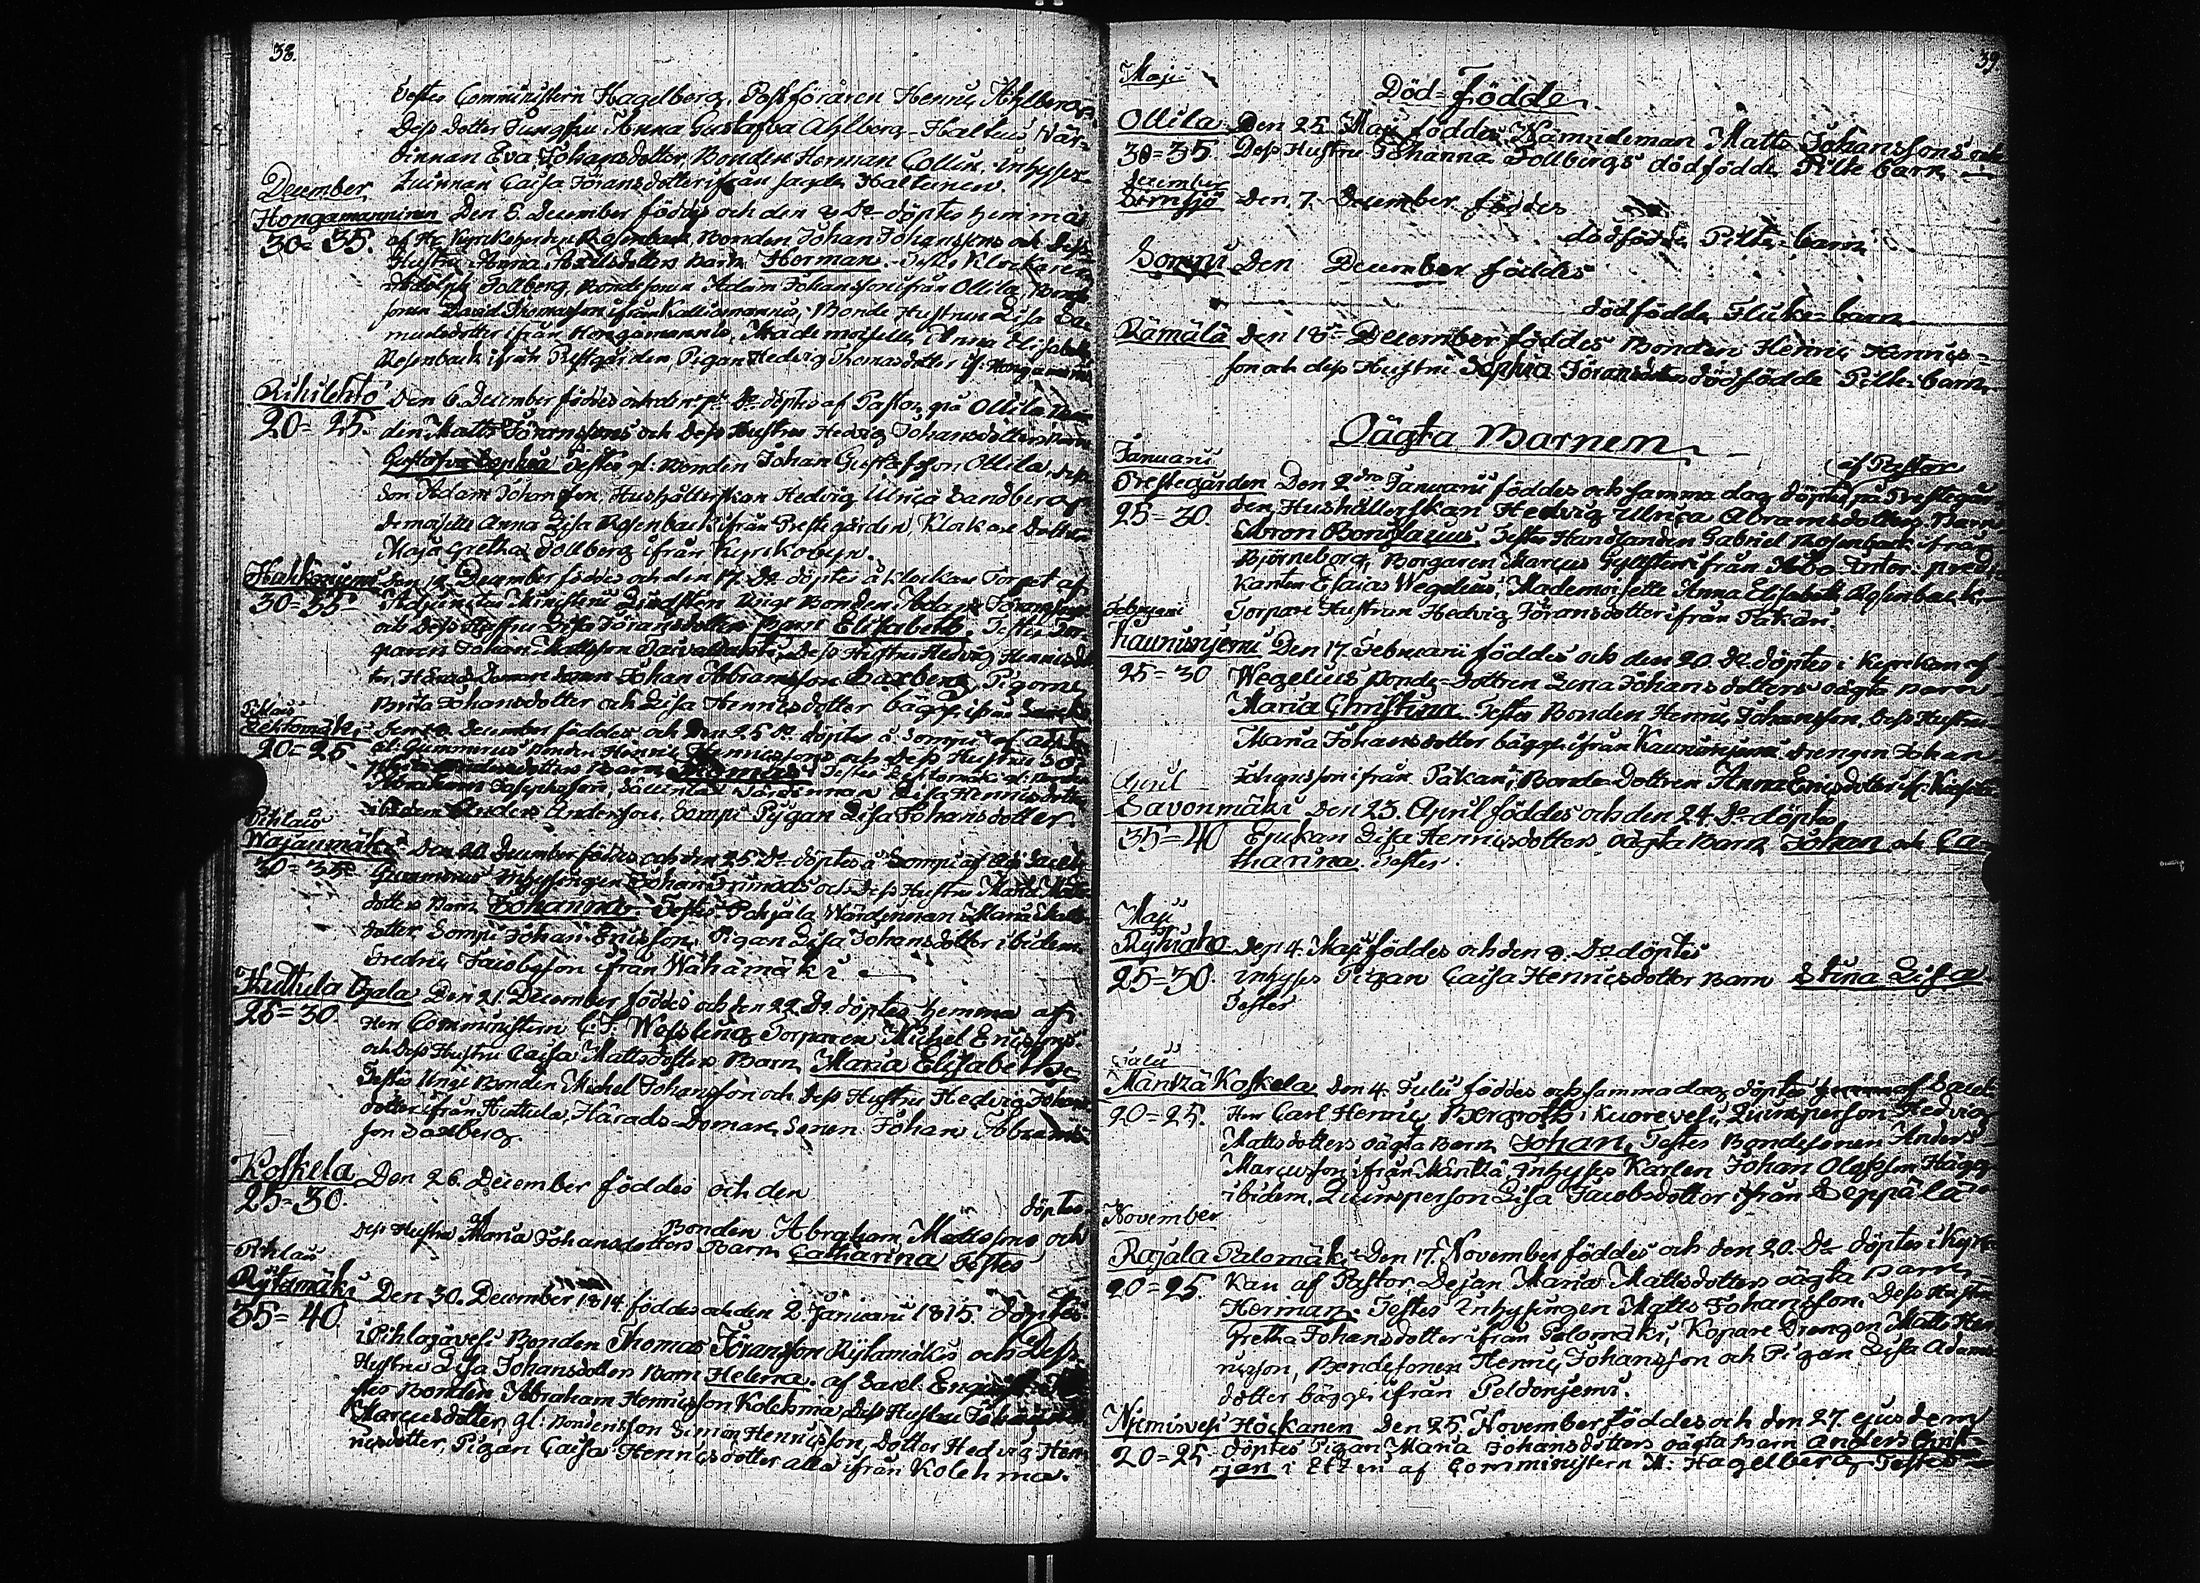 38.
Testes Comministern Hagelberg, Postföraren Henric Ahlberg,
Dess dotter Jungfru Anna Gustafva Ahlberg Haltuis Wär-
dinnan Eva Johansdotter, Bonden Herman Collin, Inhyses
Quinnan Caisa Jöransdotter ifrån sagde Haltunen.
December
Hongamanninen Den 5. December föddes och den 7 Do döptes hemma
30=35. af Hr Kyrkoherden Rosenback, Bonden Johan Johanssons och dess
Hustru Anna dotters Barn Herman. Testes Klockaren
Adolph Tollberg, Bondesonen Adam Johansson ifrån Ollila, Bonde
sonen David Thomasson ifrån Kallionannis, Bonde Hustrun Lisa Sa-
muelsdotter ifrån Hongamannis, Mademoiselle Anna Elisabeth
Rosenback ifrån Prestgården, Pigan Hedvig Thomasdotter if: Hongamannis
Rihilehto Den 6. December föddes och den 7de Do döptes af Pastor på Ollila Bon-
20=25. den Matts Jöranssons och dess Hustru Hedvig Johansdotters Barn
Gustafva Sophia Testes gl: Bonden Johan Gustafsson Ollila, dess
Son Adam Johansson, Hushållerskan Hedvig Ulrica Sandberg
Demoiselle Anna Lisa Rosenback ifrån Prestegården, Klockare dottern
Maja Gretha Tollberg ifrån Kyrkobyn.
Hakkoniemi Den 12. December föddes och den 17. Do döptes å Klockare Torpet af
30=35 Adjuncten Ministerii Lindsten Unge Bonden Adam Jöranssons
och dess Hustru Lisa Jöransdotters Barn Elisabeth, Testes Tor-
paren Johan Mattsson dess Hustru Hedvig Henricsdot-
ter, Härads Domare sonen Johan Abramsson Saxberg, Pigorne
Brita Johansdotter och Lisa Henricsdotter bägge ifrån
Pihlais
Lehtomäki Den December föddes och den 25 Do döptes å Sompii af
20=25 Gummerus Bonden Henric Henricssons och dess Hustru
dotters Barn Thomas Testes Lehtomäki gl: Bonden
Abraham Josephsson, Wärdinnan Lisa Henricsdotter
ibidem Anders Andersson, Sompii Pigan Lisa Johansdotter.
Pihlais
Wajanmäki Den 20. December föddes och den 25. Do döptes å Sompii af
30=35 Gummerus Inhysingen Johan och dess Hustru Maria Matts
dotters Barn Johanna. Testes Pohjala Wärdinnan Maria Matts-
dotter, Sompii Johan Ericsson, Pigan Lisa Johansdotter ibidem
Fredric Jacobsson ifrån Wähämäki
Huttula Ojala Den 21. December föddes och den 22. Do döptes hemma af
25=30 Herr Comministern C. F. Wessling Torparen Michel Ericssons
och dess Hustru Caisa Mattsdotters Barn Maria Elisabeth.
Testes Unge Bonden Michel Johansson och dess Hustru Hedvig Johans
dotter ifrån Huttula, Härads-Domare, Sonen Johan Abrams-
son Saxberg.
Koskela Den 26. December föddes och den
25=30. döptes
af Bonden Abraham Mattssons och
dess Hustru Maria Johansdotters Barn Catharina Testes
Pihlais
Rytämäki Den 30. December 1814 föddes och den 2. Januarii 1815. döptes
35=40. i Pihlajavesi Bonden Thomas Jöransson Rytämäkis och dess
Hustru Lisa Johansdotters Barn Helena. af Sacel. Te-
stes Bonden Abraham Henricsson Kolehma dess Hustru
Marcusdotter, gl: Bondens son Simon Henricsson, dotter Hedvig Hen-
ricsdotter, Pigan Caisa Henricsdotter alla ifrån Kolehma.
39
Maji Död=födde
Ollila Den 25 Maji föddes Nämndeman Matts Johanssons och
30=35. dess Hustru Johanna Tollbergs dödfödde Pilte barn
December
Sornsjö Den 7. December föddes
dödfödde Pilte-barn
Sompii Den December föddes
dödfödde Flicke-barn
Kämälä Den 18de December föddes Bonden Henric Henrics-
son och dess Hustru Sophia Jöransdotters dödfödde Pilte-barn
Oägta Barnen
Januarii af Pastor
Prestegården Den 2dra Januarii föddes och samma dag döptes på Prestegår-
25=30. den Hushållerskan Hedvig Ulrica Abramsdotters Barn
Aron Bonifacius. Testes Handlanden Gabriel Rosenback ifrån
Björneborg, Borgaren Marcus ifrån Åbo Entor. predi-
kanten Esaias Wegelius, Mademoiselle Anna Elisabeth Rosenback,
Torpare Hustrun Hedvig Jöransdotter ifrån Pakari.
Februarii
Kaunisniemi Den 17 Februarii föddes och den 20. Do döptes i Kyrkan af
25=30 Wegelius Bonde-Dottren Lena Johansdotters oägta Barn
Maria Christina Testes Bonden Henric Johansson, dess Hustru
Maria Johansdotter bägge ifrån Kaunisniemi, Drengen Johan
Johansson ifrån Pakari, Bonde Dottren Anna Ericsdotter if:
April
Savonmäki Den 23. April föddes och den 24. Do döptes
35=40 Enckan Lisa Henricsdotters oägta Barn Johan och Ca-
tharina. Testes
Maji
Rytniaho Den 4. Maji föddes och den 8. Do döptes
25=30. Inhyses Pigan Caisa Henricsdotter Barn Stina Lisa
Testes
Julii
Mänttä Koskela Den 4. Julii föddes och samma dag döptes hemma af Sacel.
20=25. Herr Carl Henric Bergroth i Kuorevesi, Quinsperson Hedvig
Mattsdotters oägta Barn Johan, Testes Bondesonen Anders
Marcusson ifrån Mänttä, Inhyses Karlen Johan Olofsson Hägg
ibidem, Quinsperson Lisa Jacobsdotter ifrån Seppälä
November
Rajala Palomäki Den 17. November föddes och den 20. Do döptes i Kyr-
20=25 kan af Pastor, Dejan Maria Mattsdotters oägta Barn
Herman. Testes Inhysingen Matts Johansson, Dess Hustru
Gretha Johansdotter ifrån Palomäki, Kopare Drengen Matts Hen-
ricsson, Bondesonen Henric Johansson och Pigan Lisa Adams
dotter bägge ifrån Peldoniemi.
Niemisvesi Höckanen Den 25. November föddes och den 27. ejusdem
20=25 döptes Pigan Maria Johansdotters oägta Barn Anders Christ-
jan i Etzeri af Comministern A: Hagelberg Testes